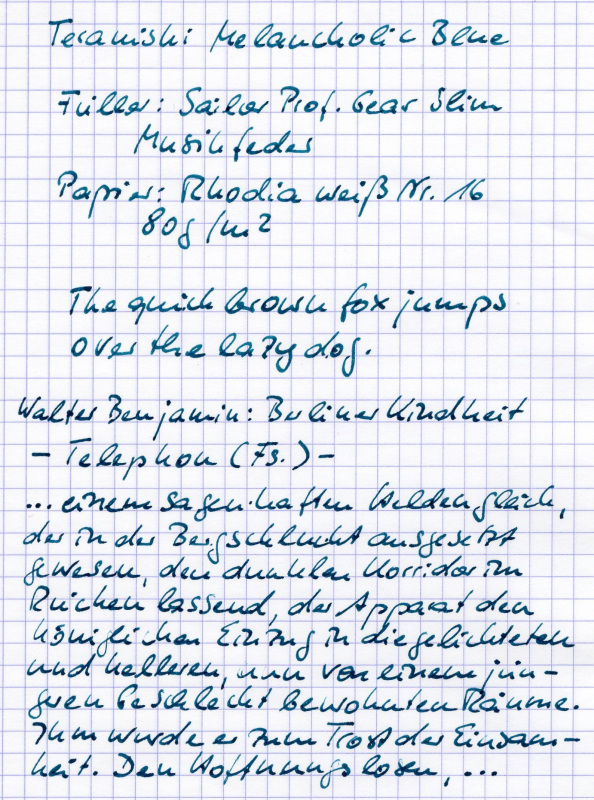 Teranishi Melancholic Blue
Füller: Sailor Prof. Gear Slim
Musikfeder
Papier: Rhodia weiß Nr. 16
80g/m2
The quick brown fox jumps
over the lazy dog.
Walter Benjamin: Berliner Kindheit
- Telephon (Fs.) -
... einem sagenhaften Helden gleich,
der in der Bergschlucht ausgesetzt
gewesen, den dunklen Korridor im
Rücken lassend, der Apparat den
königlichen Einzug in die gelichteten
und helleren, nun von einem jün-
geren Geschlecht bewohnten Räume.
Ihm wurde er zum Trost der Einsam-
keit. Den Hoffnungslosen, ...